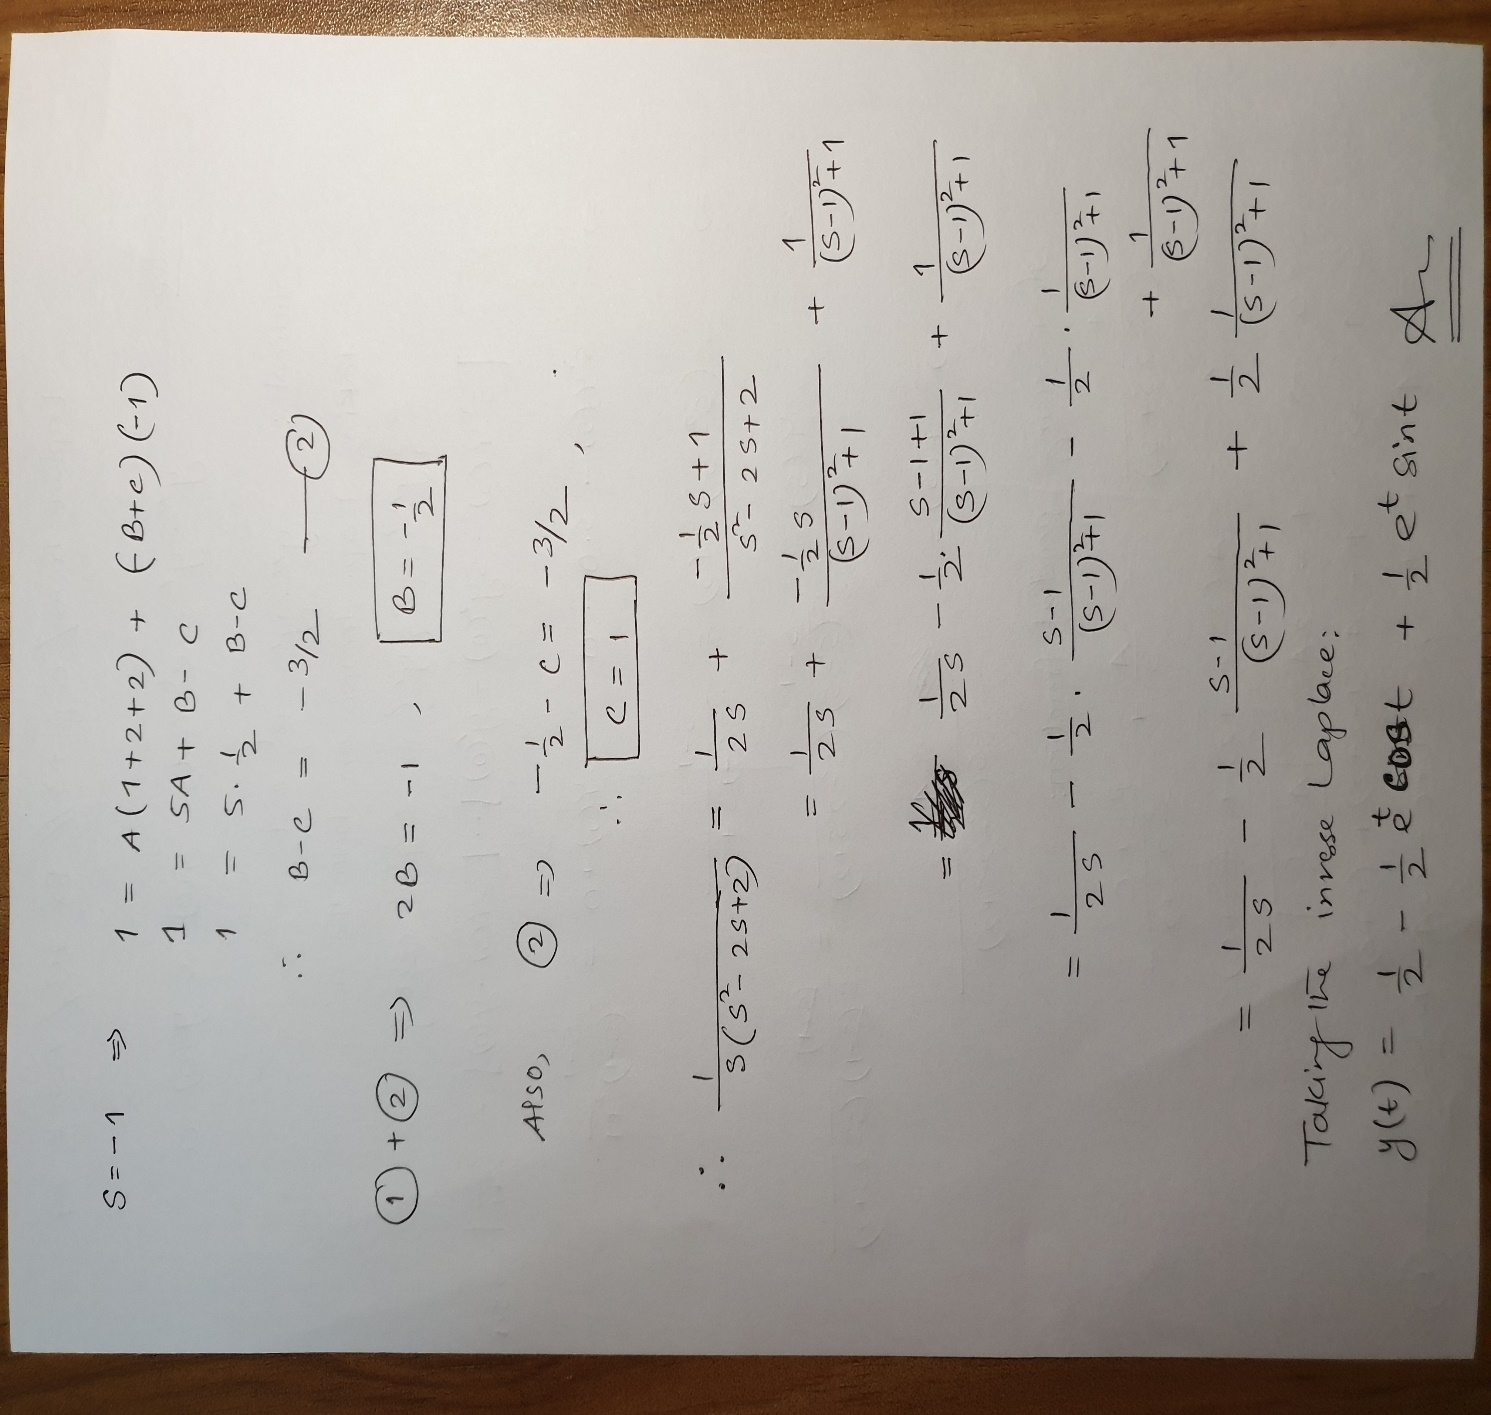 S = -1 ⇒ 1 = A(1+2+2) + (-B+C)(-1)
1 = 5A + B - C
1 = 5·1/2 + B-C
∴ B-C = -3/2 —— (2)
(1) + (2) ⇒ 2B = -1 , B = -1/2
Also, (2) ⇒ -1/2 - C = -3/2 , .
∴ C = 1
∴ 1/(S(S²-2S+2)) = 1/2S + (-1/2 S + 1)/(S²-2S+2)
= 1/2S + (-1/2 S)/((S-1)²+1) + 1/((S-1)²+1)
= 1/2S - 1/2 · (S-1+1)/((S-1)²+1) + 1/((S-1)²+1)
= 1/2S - 1/2 · (S-1)/((S-1)²+1) - 1/2 · 1/((S-1)²+1)
+ 1/((S-1)²+1)
= 1/2S - 1/2 (S-1)/((S-1)²+1) + 1/2 1/((S-1)²+1)
Taking the inverse Laplace:
y(t) = 1/2 - 1/2 e^t cost + 1/2 e^t sint